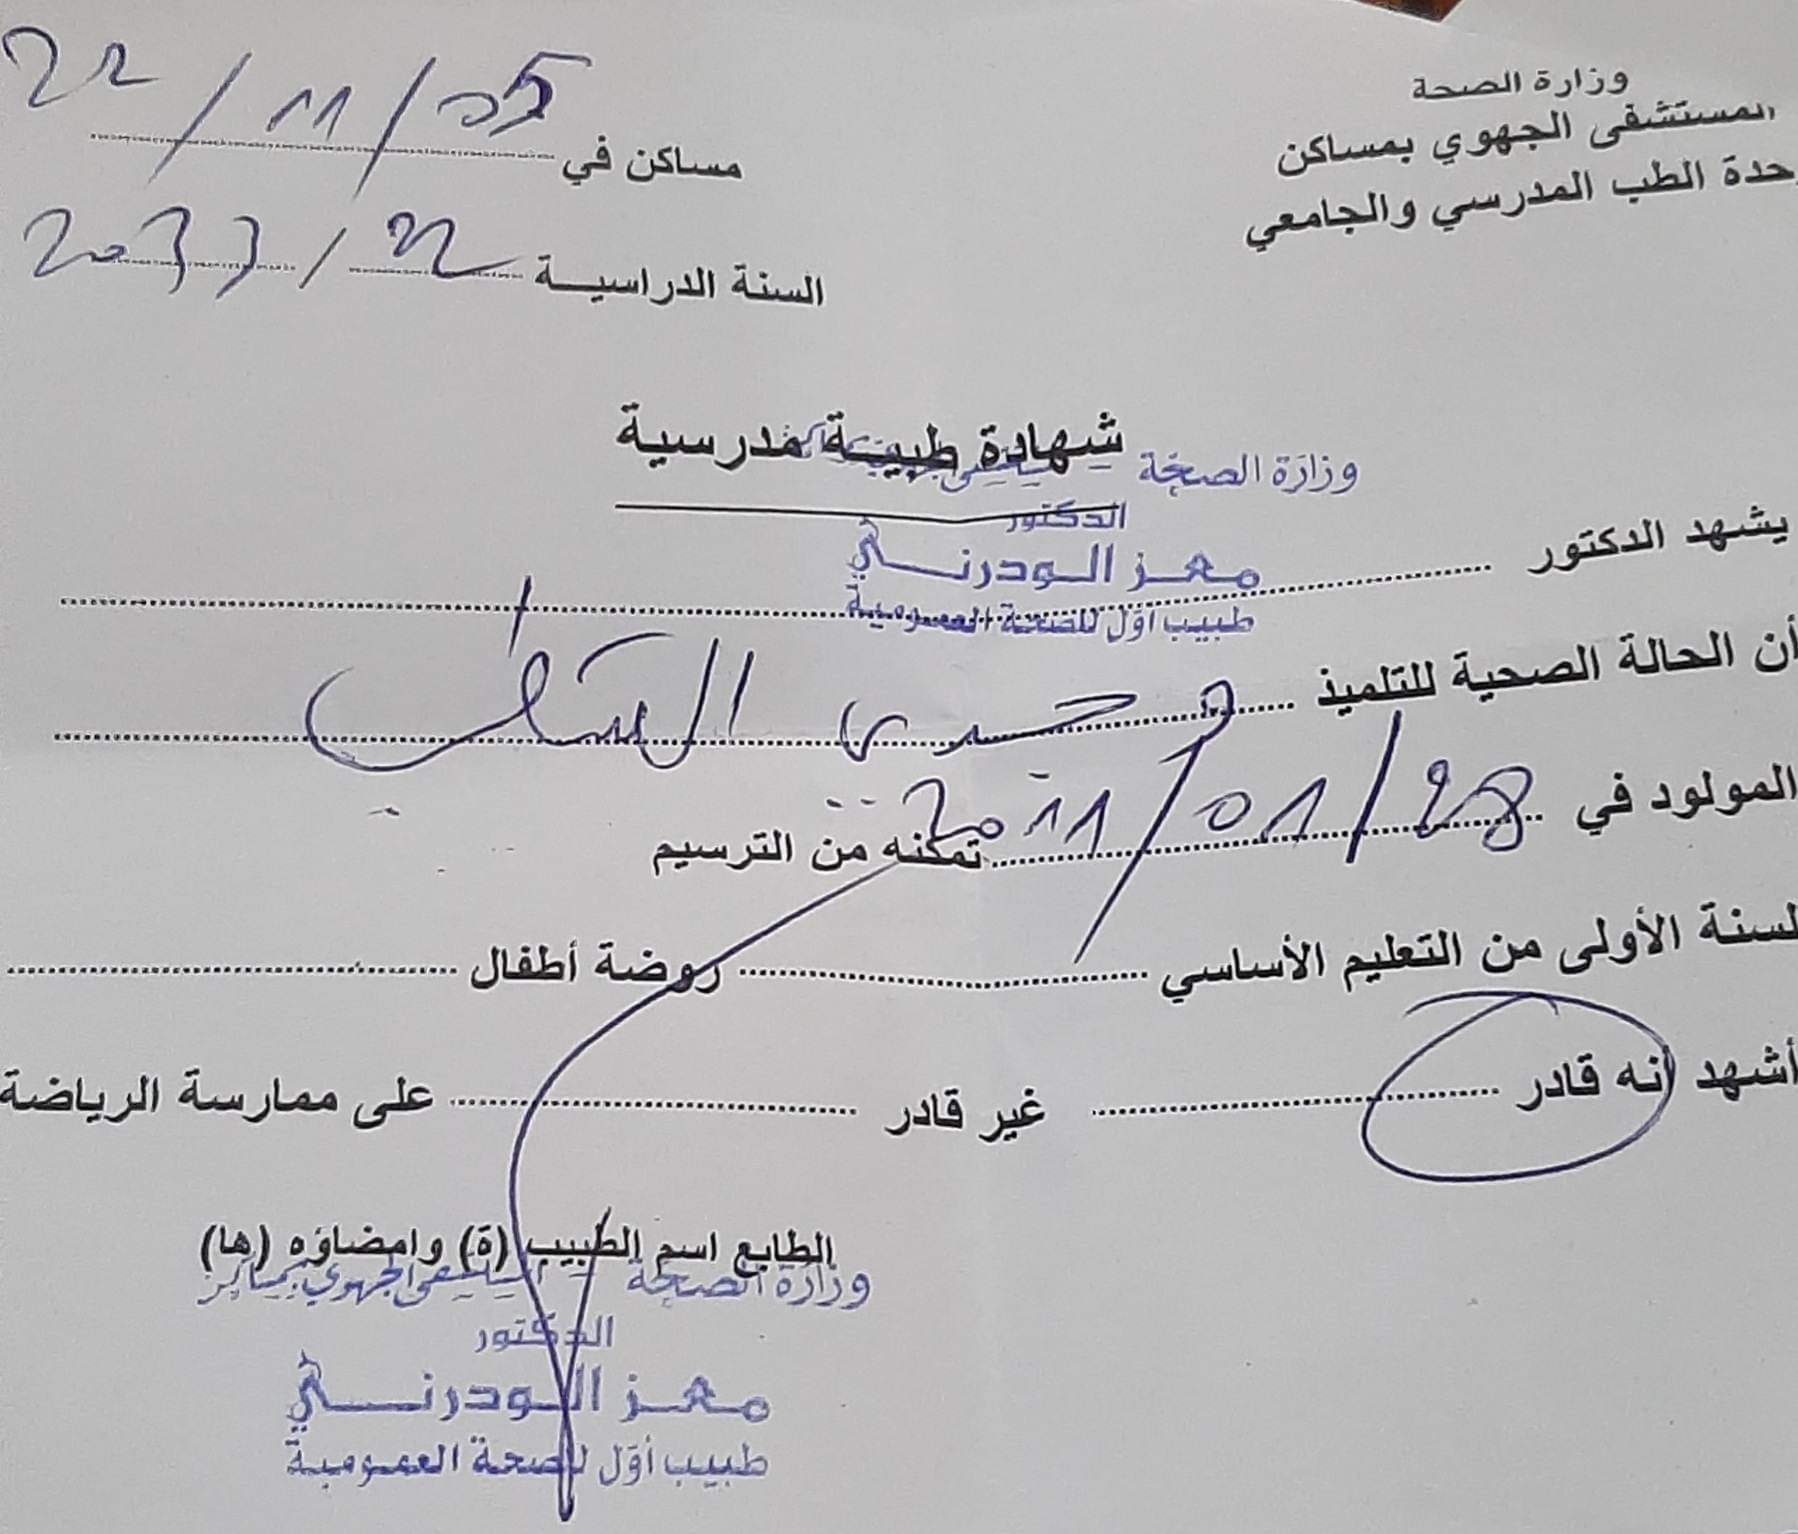 وزارة الصحة
المستشفى الجهوي بمساكن
حدة الطب المدرسي والجامعي
مساكن في 05/11/22
السنة الدراسية 22/2023
شهادة طبية مدرسية
وزارة الصحة
الدكتور
معز الودرني
طبيب أول للصحة العمومية
يشهد الدكتور
أن الحالة الصحية للتلميذ
المولود في 28/01/2011 تمكنه من الترسيم
لسنة الأولى من التعليم الأساسي روضة أطفال
أشهد أنه قادر غير قادر على ممارسة الرياضة
الطابع اسم الطبيب (ة) وامضاؤه (ها)
وزارة الصحة المستشفى الجهوي بمساكن
الدكتور
معز الودرني
طبيب أول للصحة العمومية